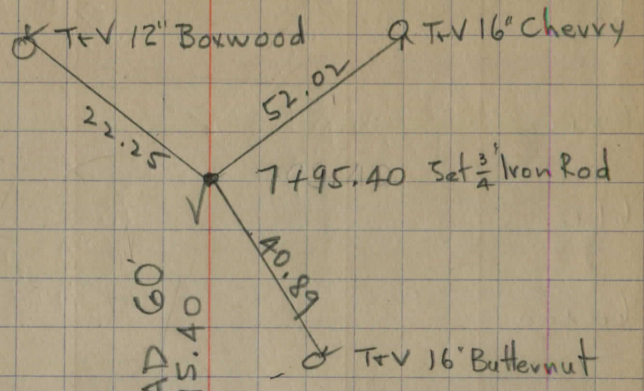 T+V 12" Boxwood
T+V 16" Cherry
22.25
52.02
7+95.40 Set 3/4" Iron Rod
40.89
T+V 16" Butternut
AD 60'
5.40